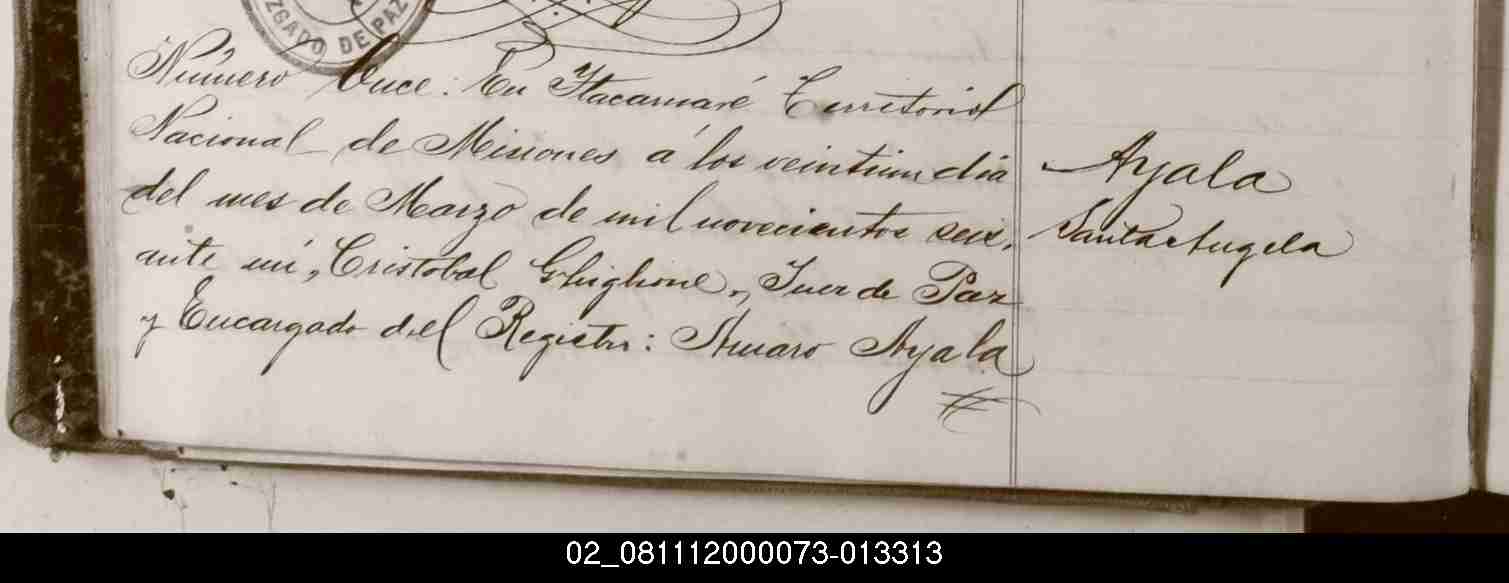 ZGADO DE PAZ
Número Once: En Itacaruaré Territorio
Nacional de Misiones á los veintiun dia
del mes de Marzo de mil novecientos seis,
ante mí, Cristobal Ghiglione, Juez de Paz
y Encargado del Registro: Amaro Ayala
Ayala
Santa Angela
02_081112000073-013313